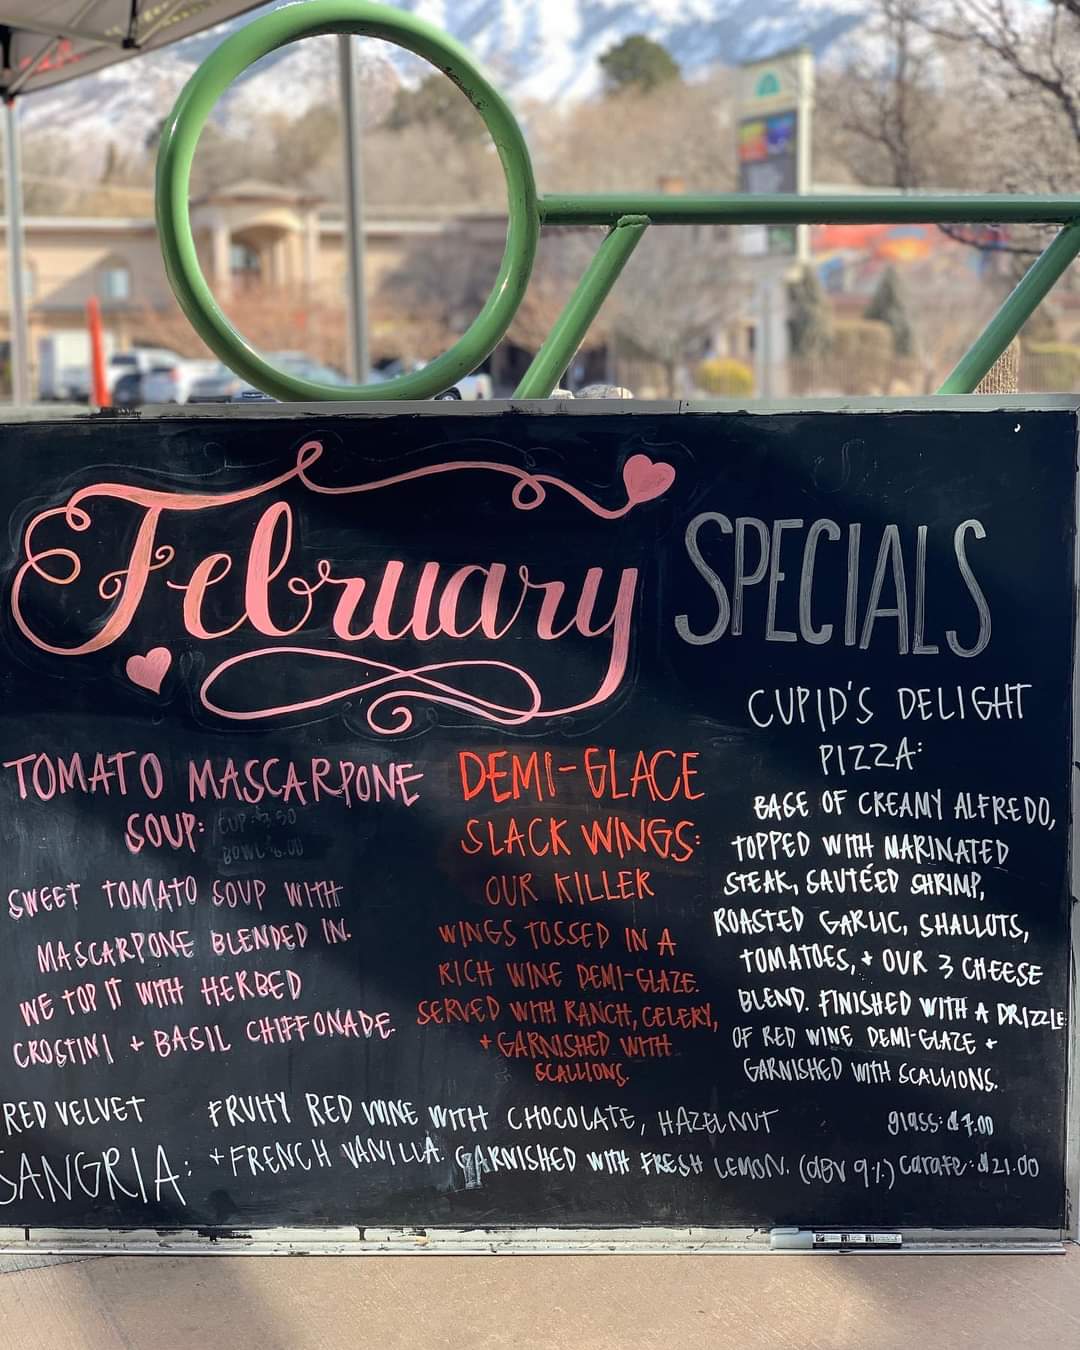 February SPECIALS
TOMATO MASCARPONE
SOUP: CUP: $3.50
BOWL 6.00
SWEET TOMATO SOUP WITH
MASCARPONE BLENDED IN.
WE TOP IT WITH HERBED
CROSTINI + BASIL CHIFFONADE.
DEMI-GLACE
SLACK WINGS:
OUR KILLER
WINGS TOSSED IN A
RICH WINE DEMI-GLAZE.
SERVED WITH RANCH, CELERY,
+ GARNISHED WITH
SCALLIONS.
CUPID'S DELIGHT
PIZZA:
BASE OF CREAMY ALFREDO,
TOPPED WITH MARINATED
STEAK, SAUTÉED SHRIMP,
ROASTED GARLIC, SHALLOTS,
TOMATOES, + OUR 3 CHEESE
BLEND. FINISHED WITH A DRIZZLE
OF RED WINE DEMI-GLAZE +
GARNISHED WITH SCALLIONS.
RED VELVET FRUITY RED WINE WITH CHOCOLATE, HAZELNUT glass: $7.00
SANGRIA: + FRENCH VANILLA. GARNISHED WITH FRESH LEMON. (abv 9%) carafe: $21.00